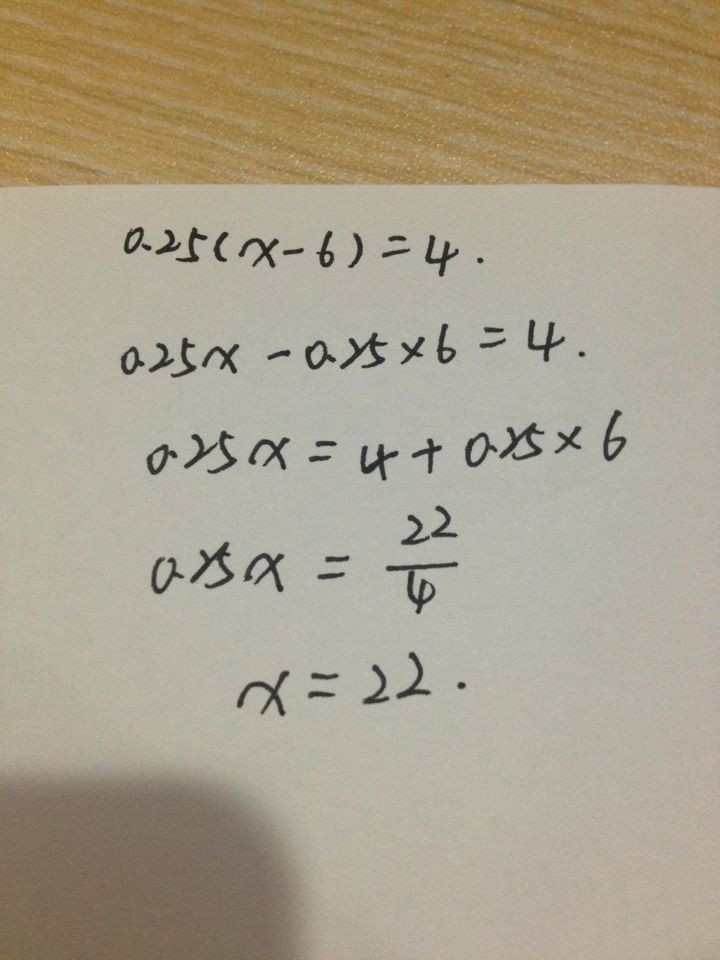 0.25(x-6)=4.
0.25x-0.25×6=4.
0.25x=4+0.25×6
0.25x=22/4
x=22.